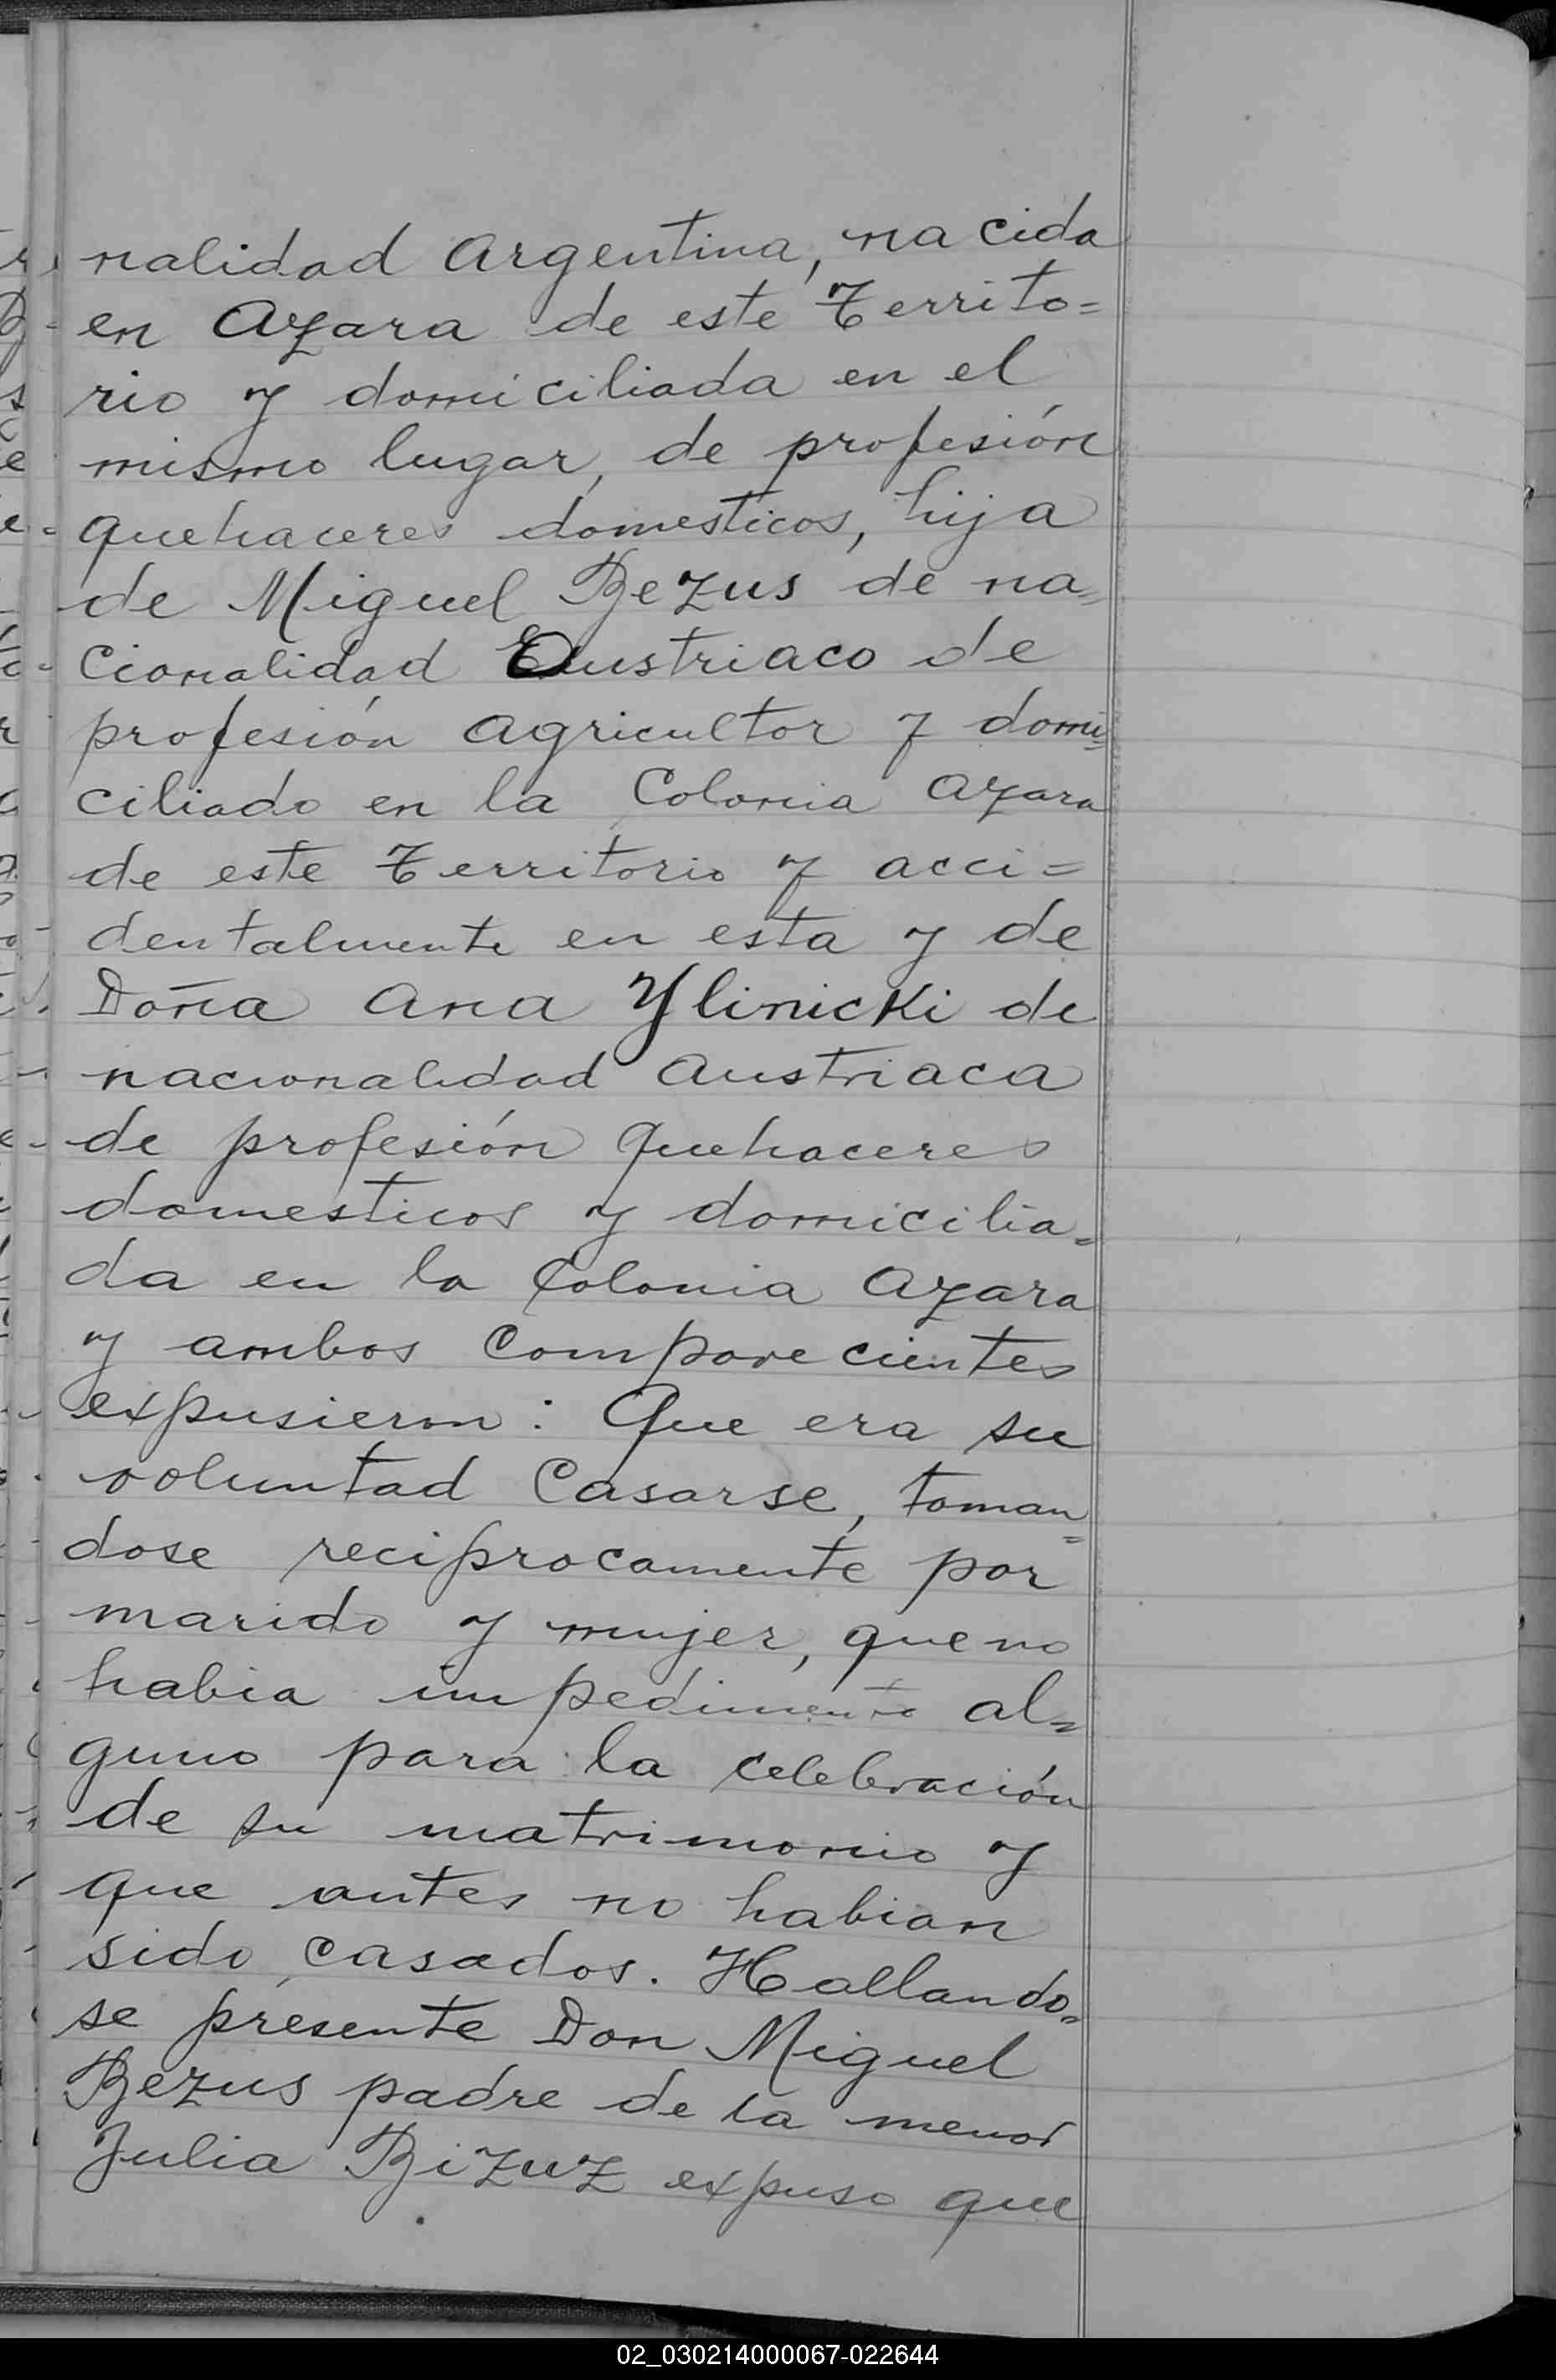 nalidad Argentina, nacida
en Azara de este Territo=
rio y domiciliada en el
mismo lugar, de profesión
quehaceres domesticos, hija
de Miguel Bezus de na=
cionalidad Austriaco de
profesión agricultor y domi=
ciliado en la Colonia Azara
de este Territorio y acci=
dentalmente en esta y de
Doña Ana Ylinicki de
nacionalidad Austriaca
de profesión quehaceres
domesticos y domicilia=
da en la Colonia Azara
y ambos comparecientes
expusieron: Que era su
voluntad casarse, toman=
dose reciprocamente por
marido y mujer, que no
habia impedimento al=
guno para la celebración
de su matrimonio y
que antes no habian
sido casados. Hallando=
se presente Don Miguel
Bezus padre de la menor
Julia Bizuz expuso que
02_030214000067-022644